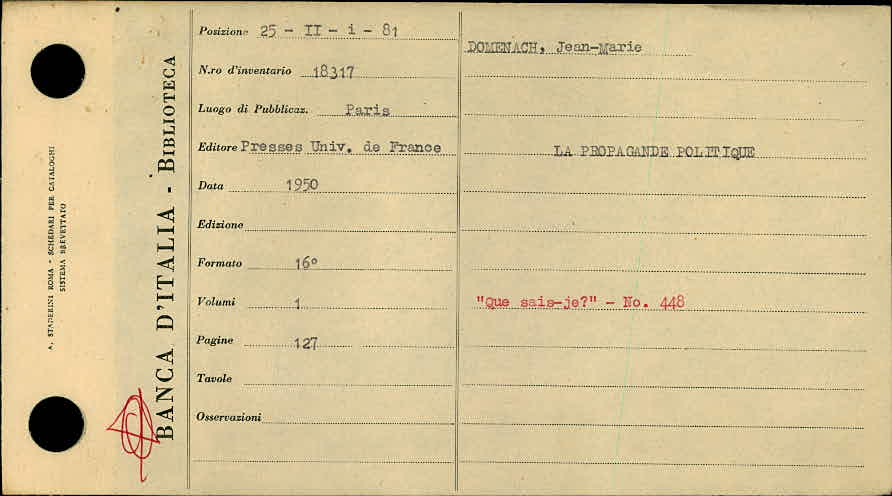 A. STADERINI ROMA - SCHEDARI PER CATALOGHI
SISTEMA BREVETTATO
BANCA D'ITALIA - BIBLIOTECA
Posizione 25 - II - i - 81
N.ro d'inventario 18317
Luogo di Pubblicaz. Paris
Editore Presses Univ. de France
Data 1950
Edizione
Formato 16°
Volumi 1
Pagine 127
Tavole
Osservazioni
DOMENACH, Jean-Marie
LA PROPAGANDE POLITIQUE
"Que sais-je?" - No. 448